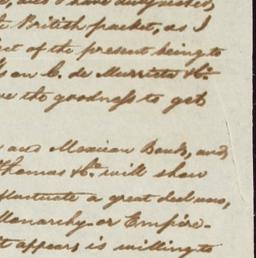 British packet, as I
of the present being to
C. de Murrieta & Co.
the goodness to get
and Mexican Bonds, and
Thomas & Co. will show
fluctuate a great deal now,
Monarchy or Empire -
it appears is willing to